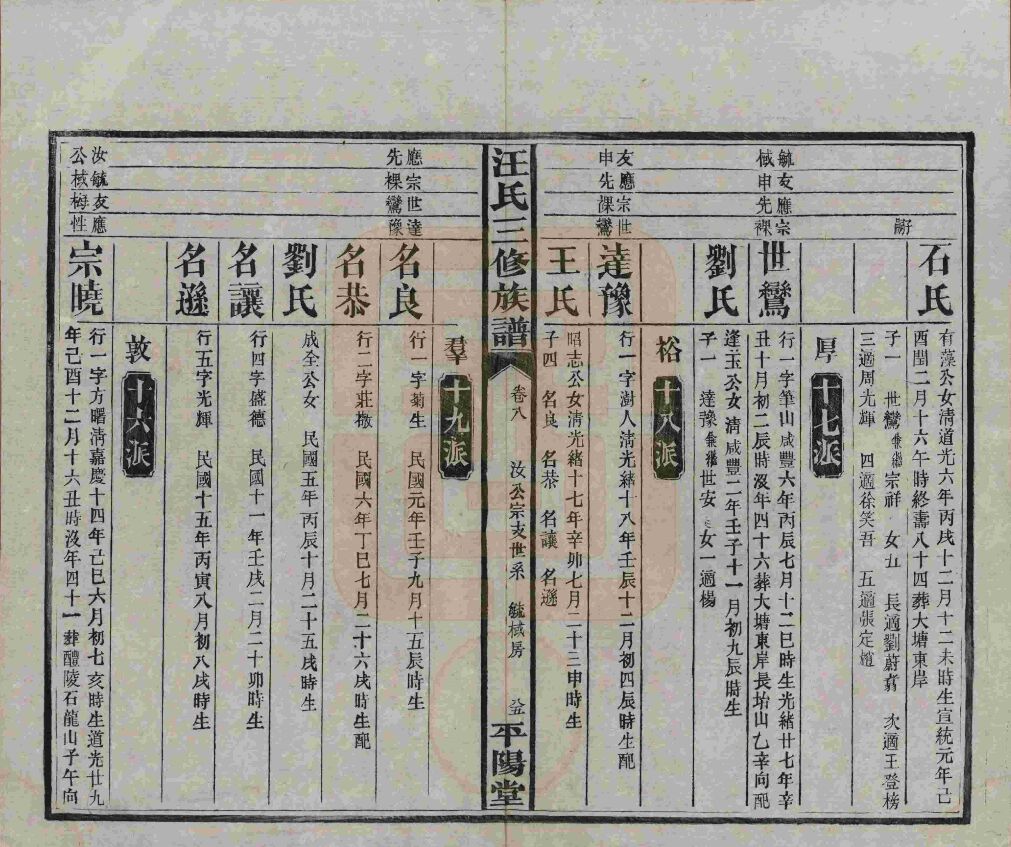 石氏
有藻公女清道光六年丙戌十二月十二未時生宣統元年己
酉閏二月十六午時終壽八十四葬大塘東岸
子一 世鸞兼繼宗祥 女五 長適劉蔚 次適王登榜
三適周光輝 四適徐笑吾 五適張定
厚 十七派
毓友應
棫申先宗祼
世鸞
行一字筆山咸豐六年丙辰七月十二巳時生光緒廿七年辛
丑十月初二辰時沒年四十六葬大塘東岸長坮山乙辛向配
劉氏
逢玉公女清咸豐二年壬子十一月初九辰時生
子一 達豫兼繼世安 女一適楊
裕 十八派
友應宗世
申先祼鸞
達豫
行一字澍人清光緒十八年壬辰十二月初四辰時生配
王氏
昭志公女清光緒十七年辛卯七月二十三申時生
子四 名良 名恭 名讓 名遜
汪氏三修族譜
卷八 汝公宗支世系 毓棫房
平陽堂
羣 十九派
應宗世達
先祼鸞豫
名良
行一字菊生 民國元年壬子九月十五辰時生
名恭
行二字莊敬 民國六年丁巳七月二十六戌時生配
劉氏
成全公女 民國五年丙辰十月二十五戌時生
名讓
行四字盛德 民國十一年壬戌二月二十卯時生
名遜
行五字光輝 民國十五年丙寅八月初八戌時生
敦 十六派
汝毓友應
公棫梅性
宗曉
行一字方曙清嘉慶十四年己巳六月初七亥時生道光廿九
年己酉十二月十六丑時沒年四十一葬醴陵石龍山子午向